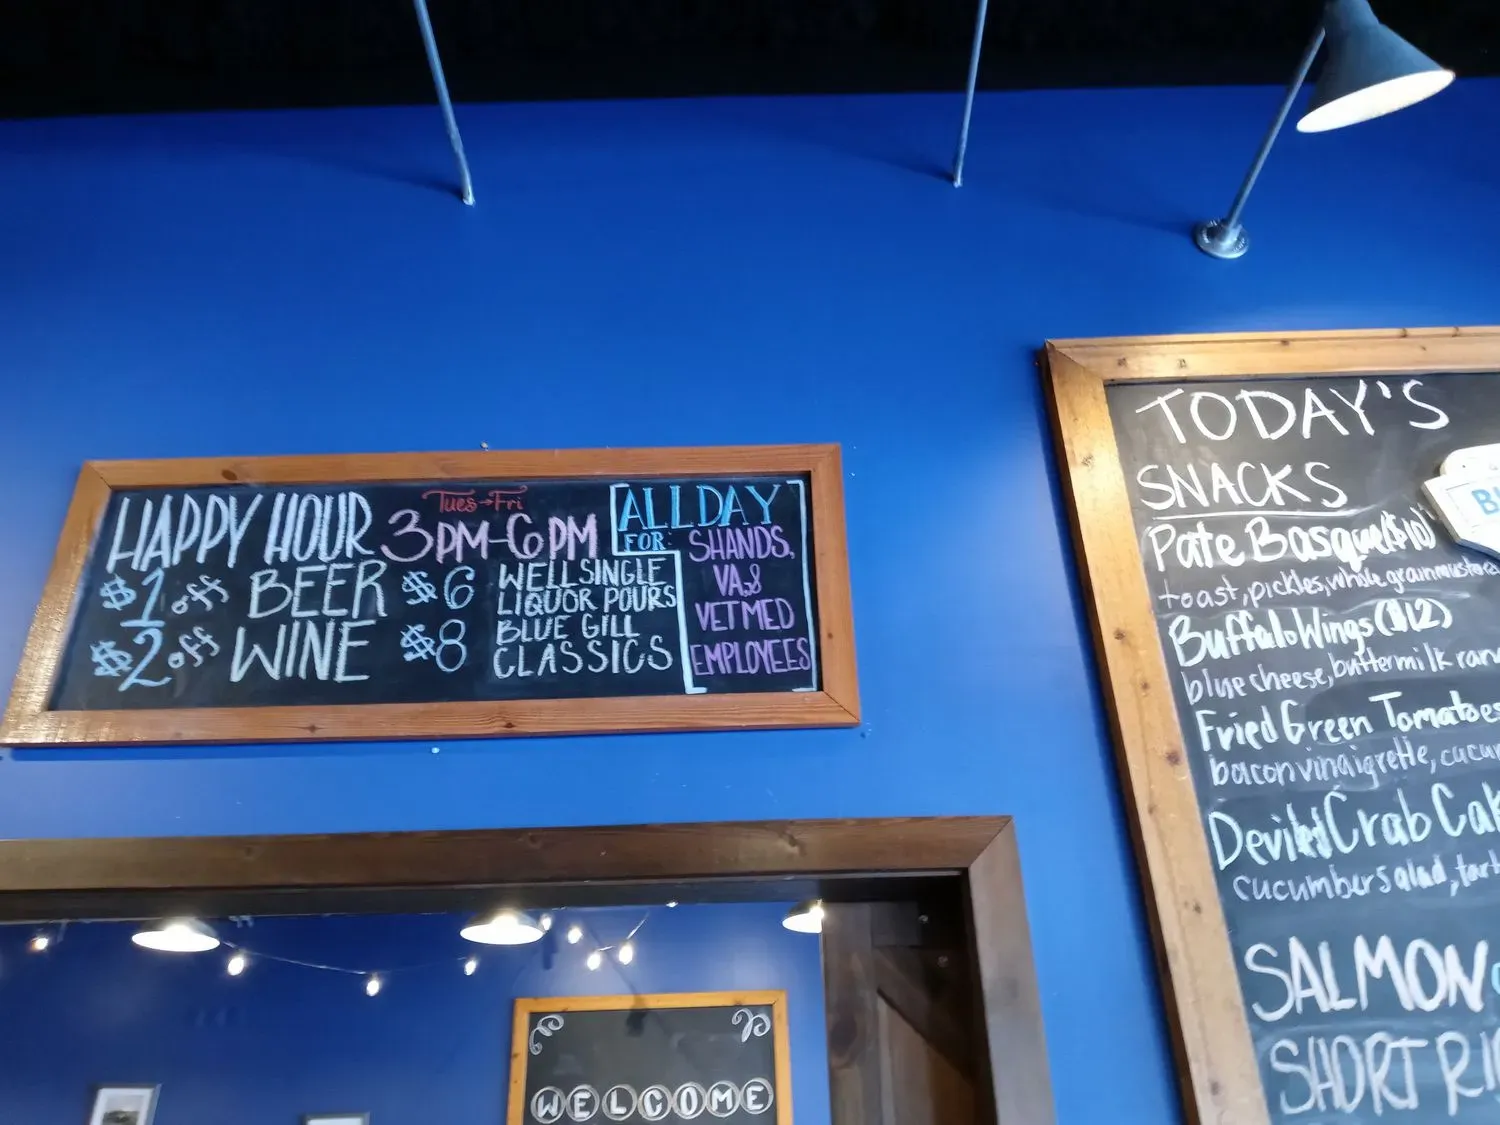 HAPPY HOUR Tues→Fri 3PM-6PM
$1 off BEER $6 WELL SINGLE LIQUOR POURS
$2 off WINE $8 BLUE GILL CLASSICS
ALL DAY
FOR: SHANDS,
VA, &
VET MED
EMPLOYEES
TODAY'S
SNACKS
Pate Basque ($10)
toast, pickles, whole grain
Buffalo Wings ($12)
blue cheese, buttermilk
Fried Green Tomatoes
bacon vinaigrette,
Deviled Crab
cucumber salad,
SALMON
SHORT
WELCOME